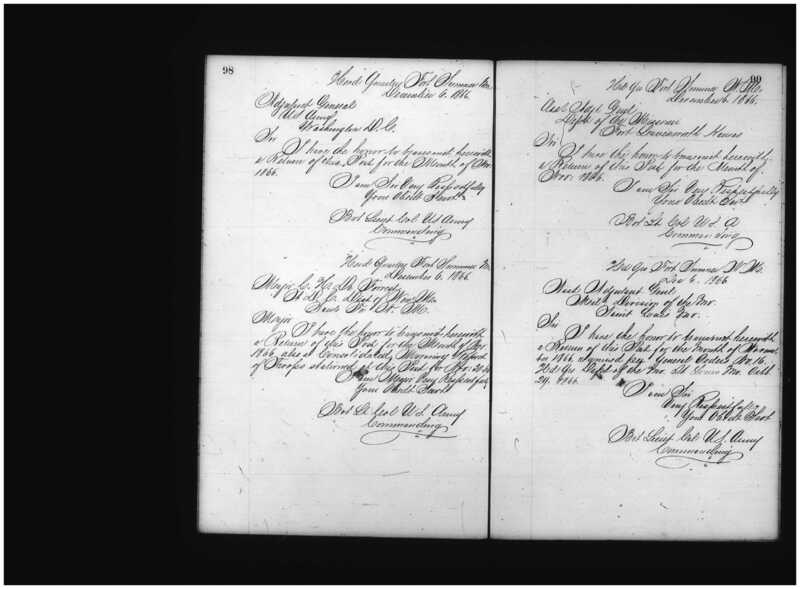 98
Head Quarters Fort Sumner N.M.
December 6. 1866.
Adjutant General
U.S. Army
Washington D.C.
Sir
I have the honor to transmit herewith
a Return of this Post for the Month of Nov
1866.
I am Sir Very Respectfully
Your Obedt Servt
Bvt Lieut Col US Army
Commanding
Head Quarters Fort Sumner N.M.
December 6. 1866.
Major C. H. De Forrest
A.D.C. Dist of New Mex
Santa Fe N. M.
Major
I have the honor to transmit herewith
a Return of this Post for the Month of Nov
1866 also a Consolidated Morning Report
of Troops stationed at this Post for Nov.
I am Major Very Respectfully
Your Obedt Servt
Bvt Lt Col U S Army
Commanding
99
Hd Qrs Fort Sumner N. M.
December 6. 1866.
Asst Adjt Genl
Dept of the Missouri
Fort Leavenworth Kansas
Sir
I have the honor to transmit herewith
a Return of this Post for the Month of
Nov. 1866.
I am Sir Very Respectfully
Your Obedt Servt
Bvt Lt Col U S A
Commanding
Hd Qrs Fort Sumner N. M.
Dec 6. 1866
Asst Adjutant Genl
Division of the Mo.
Saint Louis Mo.
Sir
I have the honor to transmit herewith
a Return of this Post for the Month of Novem
ber 1866 required by General Orders No. 16.
Hd Qrs Dept of the Mo. St Louis Mo. Octb
29. 1866.
I am Sir
Very Respectfully
Your Obedt Servt
Bvt Lieut Col U.S. Army
Commanding